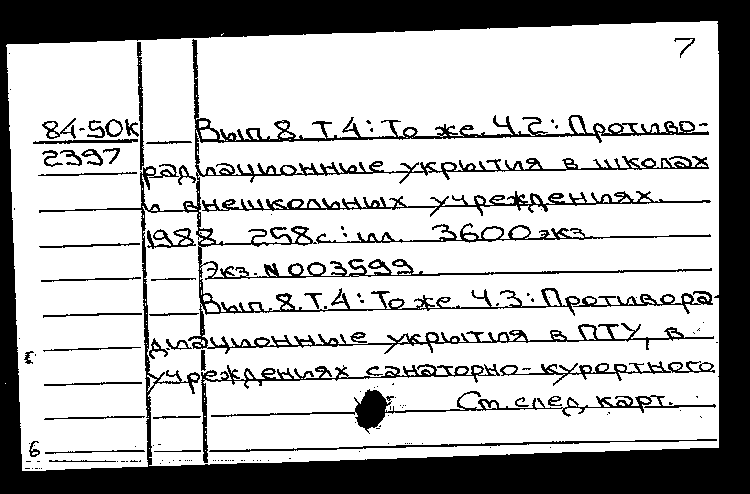 7
84-50К Вып. 8. Т. 4: То же. Ч. 2: Противо-
2397 радиационные укрытия в школах
и внешкольных учреждениях.
1988. 258 с.: ил. 3600 экз.
Экз. N 003599.
Вып. 8. Т. 4: То же. Ч. 3: Противора-
диационные укрытия в ПТУ, в
учреждениях санаторно-курортного
См. след. карт.
6